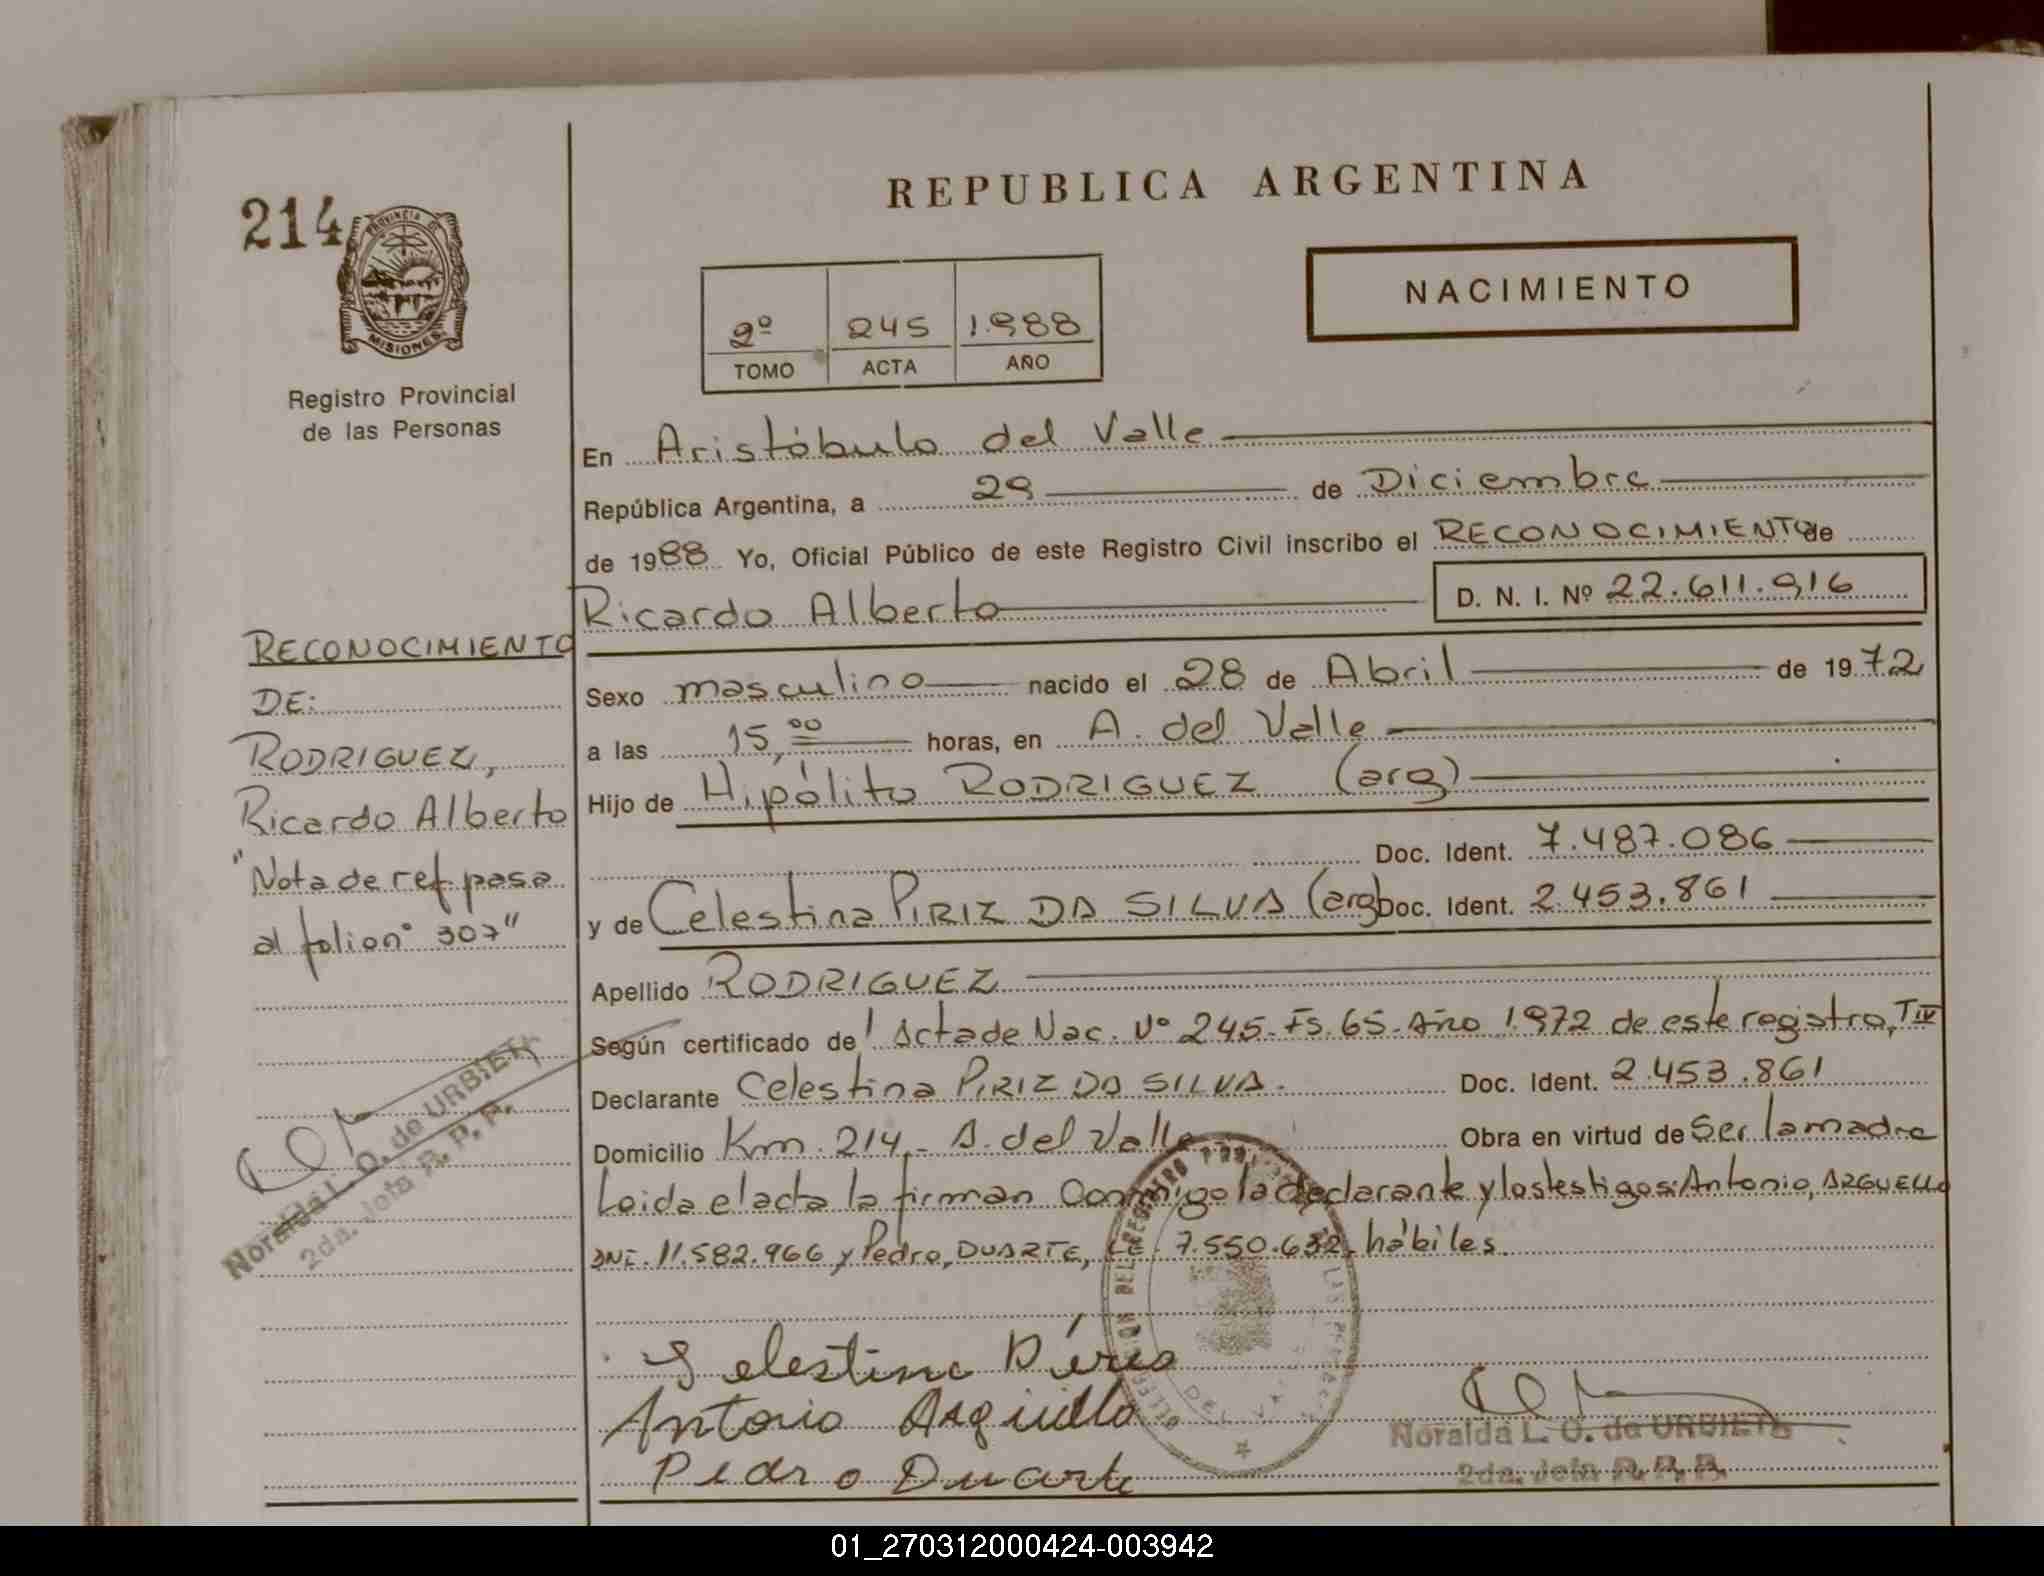 214
PROVINCIA DE
MISIONES
Registro Provincial
de las Personas
REPUBLICA ARGENTINA
2º 245 1.988
TOMO ACTA AÑO
NACIMIENTO
En Aristóbulo del Valle
República Argentina, a 29 de Diciembre
de 1988 Yo, Oficial Público de este Registro Civil inscribo el RECONOCIMIENTO de
Ricardo Alberto D. N. I. Nº 22.611.916
Sexo masculino nacido el 28 de Abril de 1972
a las 15,00 horas, en A. del Valle
Hijo de Hipólito RODRIGUEZ (arg)
Doc. Ident. 7.487.086
y de Celestina PIRIZ DA SILVA (arg) Doc. Ident. 2.453.861
Apellido RODRIGUEZ
Según certificado de Acta de Nac. Nº 245-Fs.65-Año 1.972 de este registro, T IV
Declarante Celestina PIRIZ DA SILVA. Doc. Ident. 2.453.861
Domicilio Km. 214.- A. del Valle Obra en virtud de Ser la madre
Leida el acta la firman conmigo la declarante y los testigos: Antonio, ARGUELLO
DNI. 11.582.966 y Pedro, DUARTE, LE. 7.550.632. hábiles.
RECONOCIMIENTO
DE:
RODRIGUEZ,
Ricardo Alberto
"Nota de ref. pasa
al folio nº 307"
Noralda L. O. de URBIETA
2da. Jefa R. P. P.
Celestina
Antonio
Pedro Duarte
DEL REGISTRO
DEL VALLE
Noralda L. O. de URBIETA
2da. Jefa R. P. P.
01_270312000424-003942